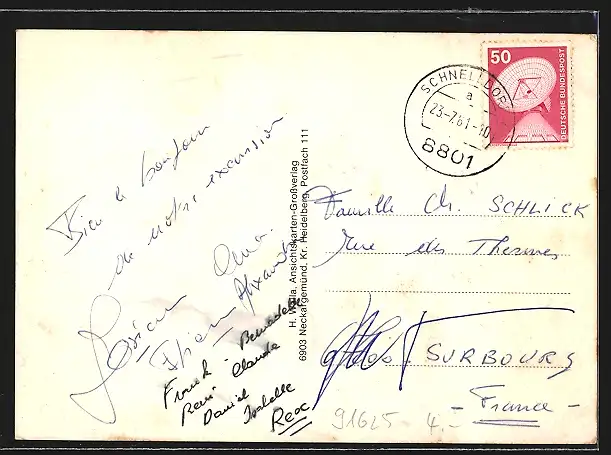 Bien le bonjour
de notre excursion
Josiane
Oma.
Pierre
Alexandre
Franck - Bernadette
René Claude
Daniel Isabelle
Rex
H. Wolla, Ansichtskarten-Großverlag
6903 Neckargemünd, Kr. Heidelberg, Postfach 111
50
DEUTSCHE BUNDESPOST
SCHNELLDORF
a
23-7.81-10
8801
Famille Ch. SCHLICK
Rue des Thermes
SURBOURG
- France -
91625 4.-